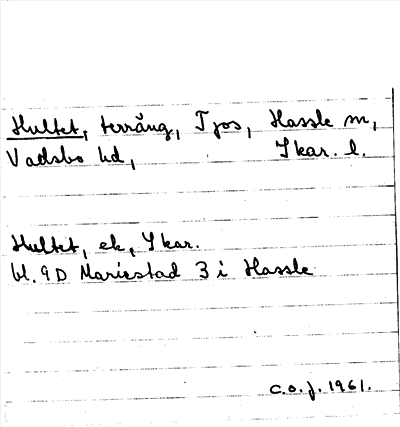 Hultet, terräng, Tjos, Hassle sn,
Vadsbo hd, Skar. l.
Hultet, ek, Skar.
bl. 9D Mariestad 3 i Hassle
C.O.J. 1961.